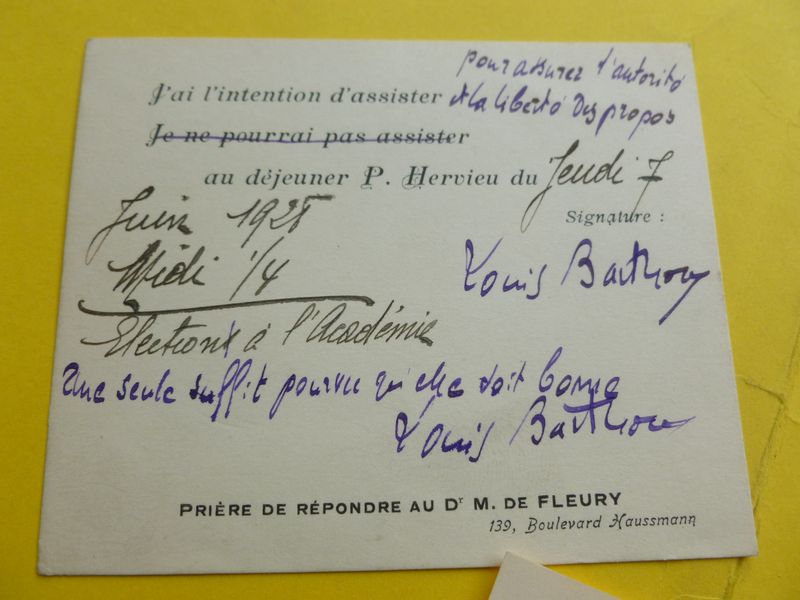 pour assurer l'autorité
J'ai l'intention d'assister
et la liberté des propos
Je ne pourrai pas assister
au déjeuner P. Hervieu du Jeudi 7
Juin 1928
Signature :
Midi 1/4
Louis Barthou
Elections à l'Académie
Une seule suffit pourvu qu'elle soit bonne
Louis Barthou
PRIÈRE DE RÉPONDRE AU Dr M. DE FLEURY
139, Boulevard Haussmann